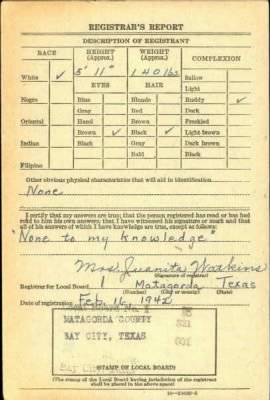 REGISTRAR'S REPORT
DESCRIPTION OF REGISTRANT
RACE HEIGHT (Approx.) WEIGHT (Approx.) COMPLEXION
White ✓ 5' 11" 140 lbs Sallow
Light
EYES HAIR
Ruddy ✓
Negro Blue Blonde Dark
Gray Red Freckled
Oriental Hazel Brown Light brown
Brown ✓ Black ✓ Dark brown
Indian Black Gray Black
Bald
Filipino
Other obvious physical characteristics that will aid in identification
None
I certify that my answers are true; that the person registered has read or has had
read to him his own answers; that I have witnessed his signature or mark and that
all of his answers of which I have knowledge are true, except as follows:
"None to my knowledge"
Mrs. Juanita Watkins
(Signature of registrar)
Registrar for Local Board 1 Matagorda Texas
(Number) (City or county) (State)
Date of registration Feb. 16, 1942
Local Board No. 1
MATAGORDA COUNTY 321
BAY CITY, TEXAS 001
Bay City
STAMP OF LOCAL BOARD
(The stamp of the Local Board having jurisdiction of the registrant
shall be placed in the above space.)